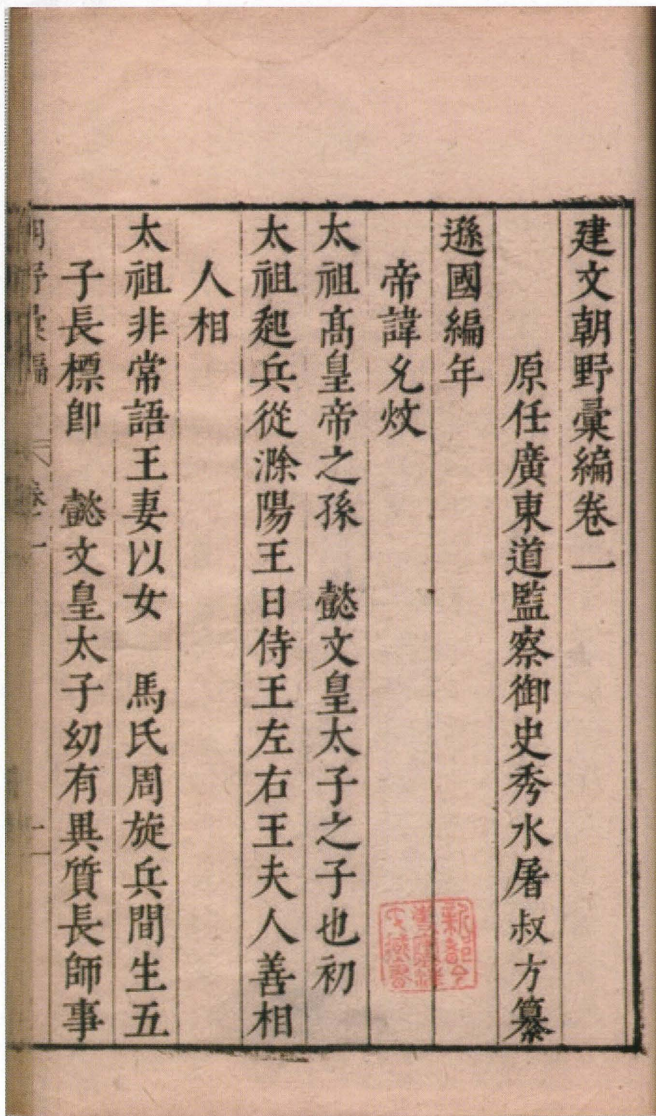 建文朝野彙編卷一
原任廣東道監察御史秀水屠叔方纂
遜國編年
帝諱允炆
太祖高皇帝之孫　懿文皇太子之子也初
太祖起兵從滁陽王日侍王左右王夫人善相
人相
太祖非常語王妻以女　馬氏周旋兵間生五
子長標卽　懿文皇太子幼有異質長師事
朝野彙編　卷一　一